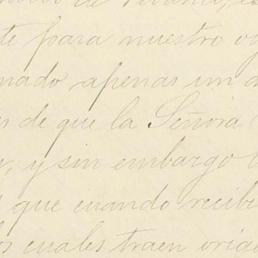 te para nuestro
nado apenas un
s de que la Señora
y sin embargo
que cuando recib
los cuales traen orig